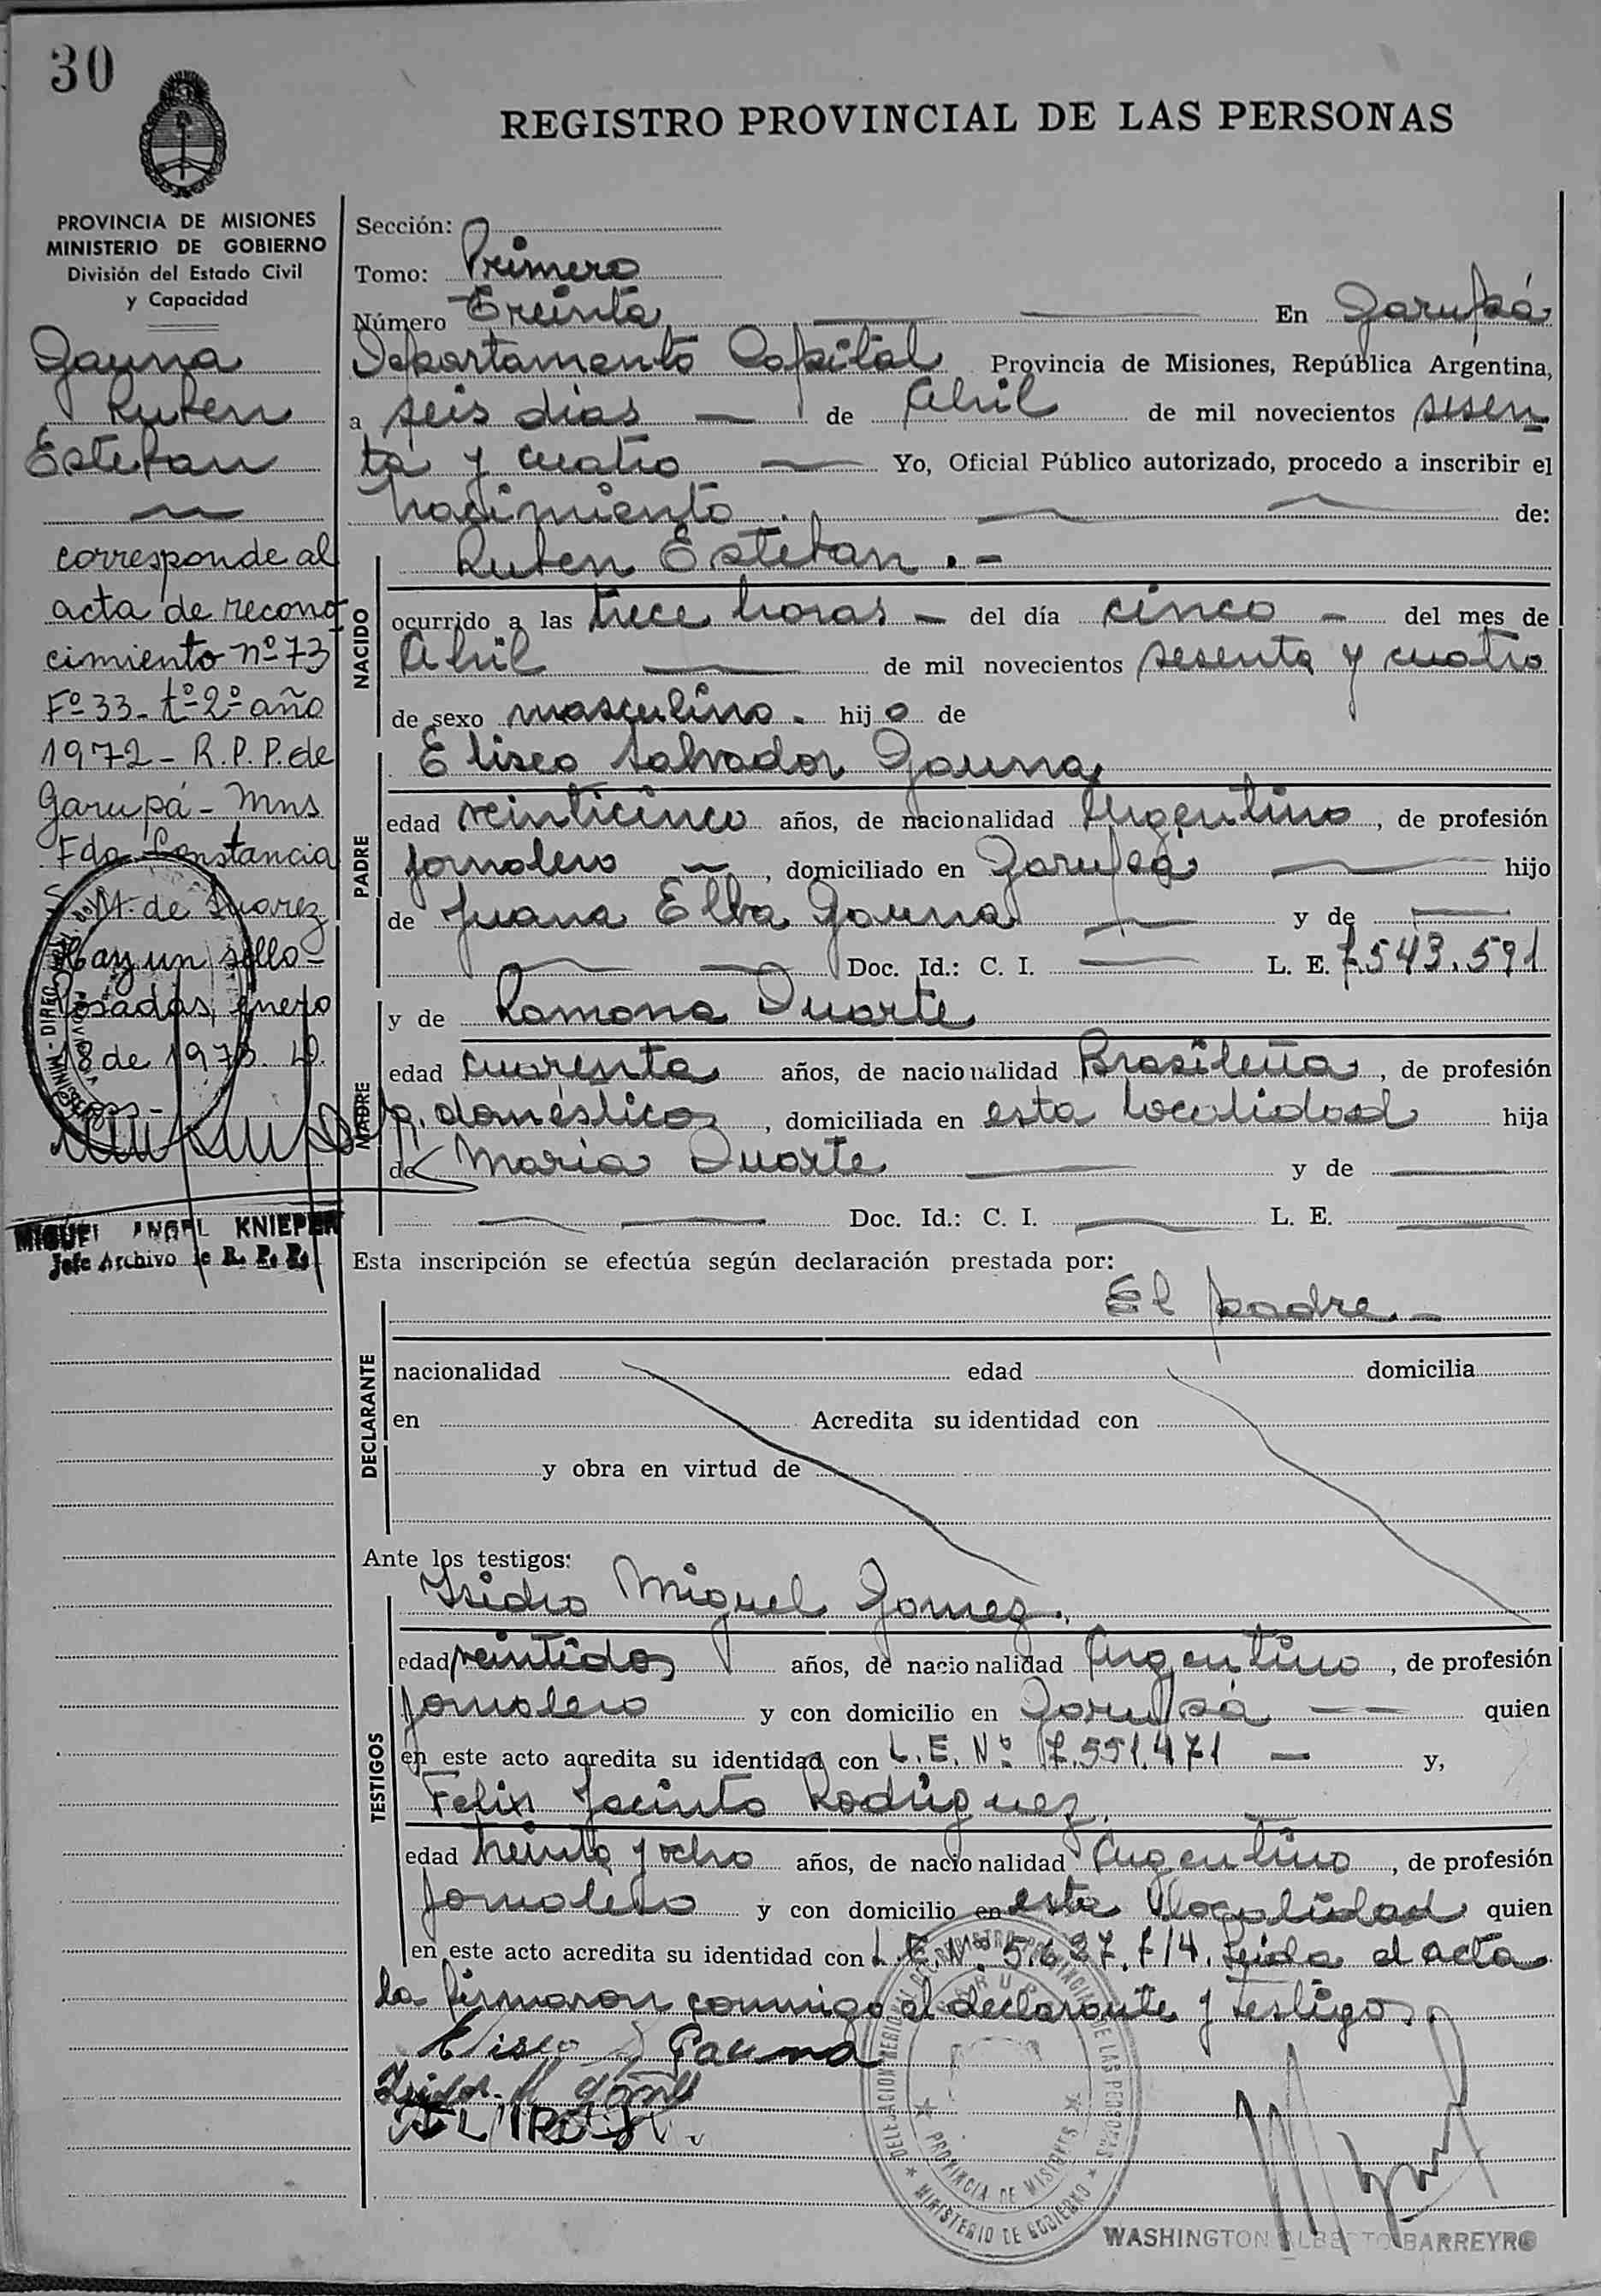 30
REGISTRO PROVINCIAL DE LAS PERSONAS
PROVINCIA DE MISIONES
MINISTERIO DE GOBIERNO
División del Estado Civil
y Capacidad
Gauna
Ruben
Esteban
corresponde al
acta de recono
cimiento nº 73
Fº 33 - tº 2º año
1972 - R.P.P. de
Garupá - Mns
Fdo Constancia
M. de Suarez
Hay un sello -
Posadas, enero
18 de 1973.
MIGUEL ANGEL KNIEPER
Jefe Archivo de R. P. P.
Sección:
Tomo: Primero
Número Treinta En Garupá
Departamento Capital Provincia de Misiones, República Argentina,
a seis dias de Abril de mil novecientos sesen
ta y cuatro Yo, Oficial Público autorizado, procedo a inscribir el
nacimiento de:
Ruben Esteban . -
NACIDO
ocurrido a las trece horas - del día cinco - del mes de
Abril de mil novecientos sesenta y cuatro
de sexo masculino. hijo de
Eliseo Salvador Gauna
PADRE
edad veinticinco años, de nacionalidad Argentino, de profesión
jornalero, domiciliado en Garupá hijo
de Juana Elba Gauna y de
Doc. Id.: C. I. L. E. 7.543.591
y de Ramona Duarte
MADRE
edad cuarenta años, de nacionalidad Brasileña, de profesión
q. domésticos, domiciliada en esta localidad hija
de Maria Duarte y de
Doc. Id.: C. I. L. E.
Esta inscripción se efectúa según declaración prestada por:
El padre. -
DECLARANTE
nacionalidad edad domicilia
en Acredita su identidad con
y obra en virtud de
Ante los testigos:
Isidro Miguel Gomez.
TESTIGOS
edad veintidos años, de nacionalidad Argentino, de profesión
jornalero y con domicilio en Garupá quien
en este acto acredita su identidad con L.E. Nº 7.551.471 - y,
Felix Jacinto Rodriguez.
edad treinta y ocho años, de nacionalidad Argentino, de profesión
jornalero y con domicilio en esta localidad quien
en este acto acredita su identidad con L.E. Nº 5.637.714. Leida el acta
la firmaron conmigo el declarante y testigos.
Eliseo S Gauna
DELEGACION REGIONAL DEL REGISTRO PROVINCIAL DE LAS PERSONAS
GARUPA
PROVINCIA DE MISIONES
MINISTERIO DE GOBIERNO
WASHINGTON ALBERTO BARREYRO